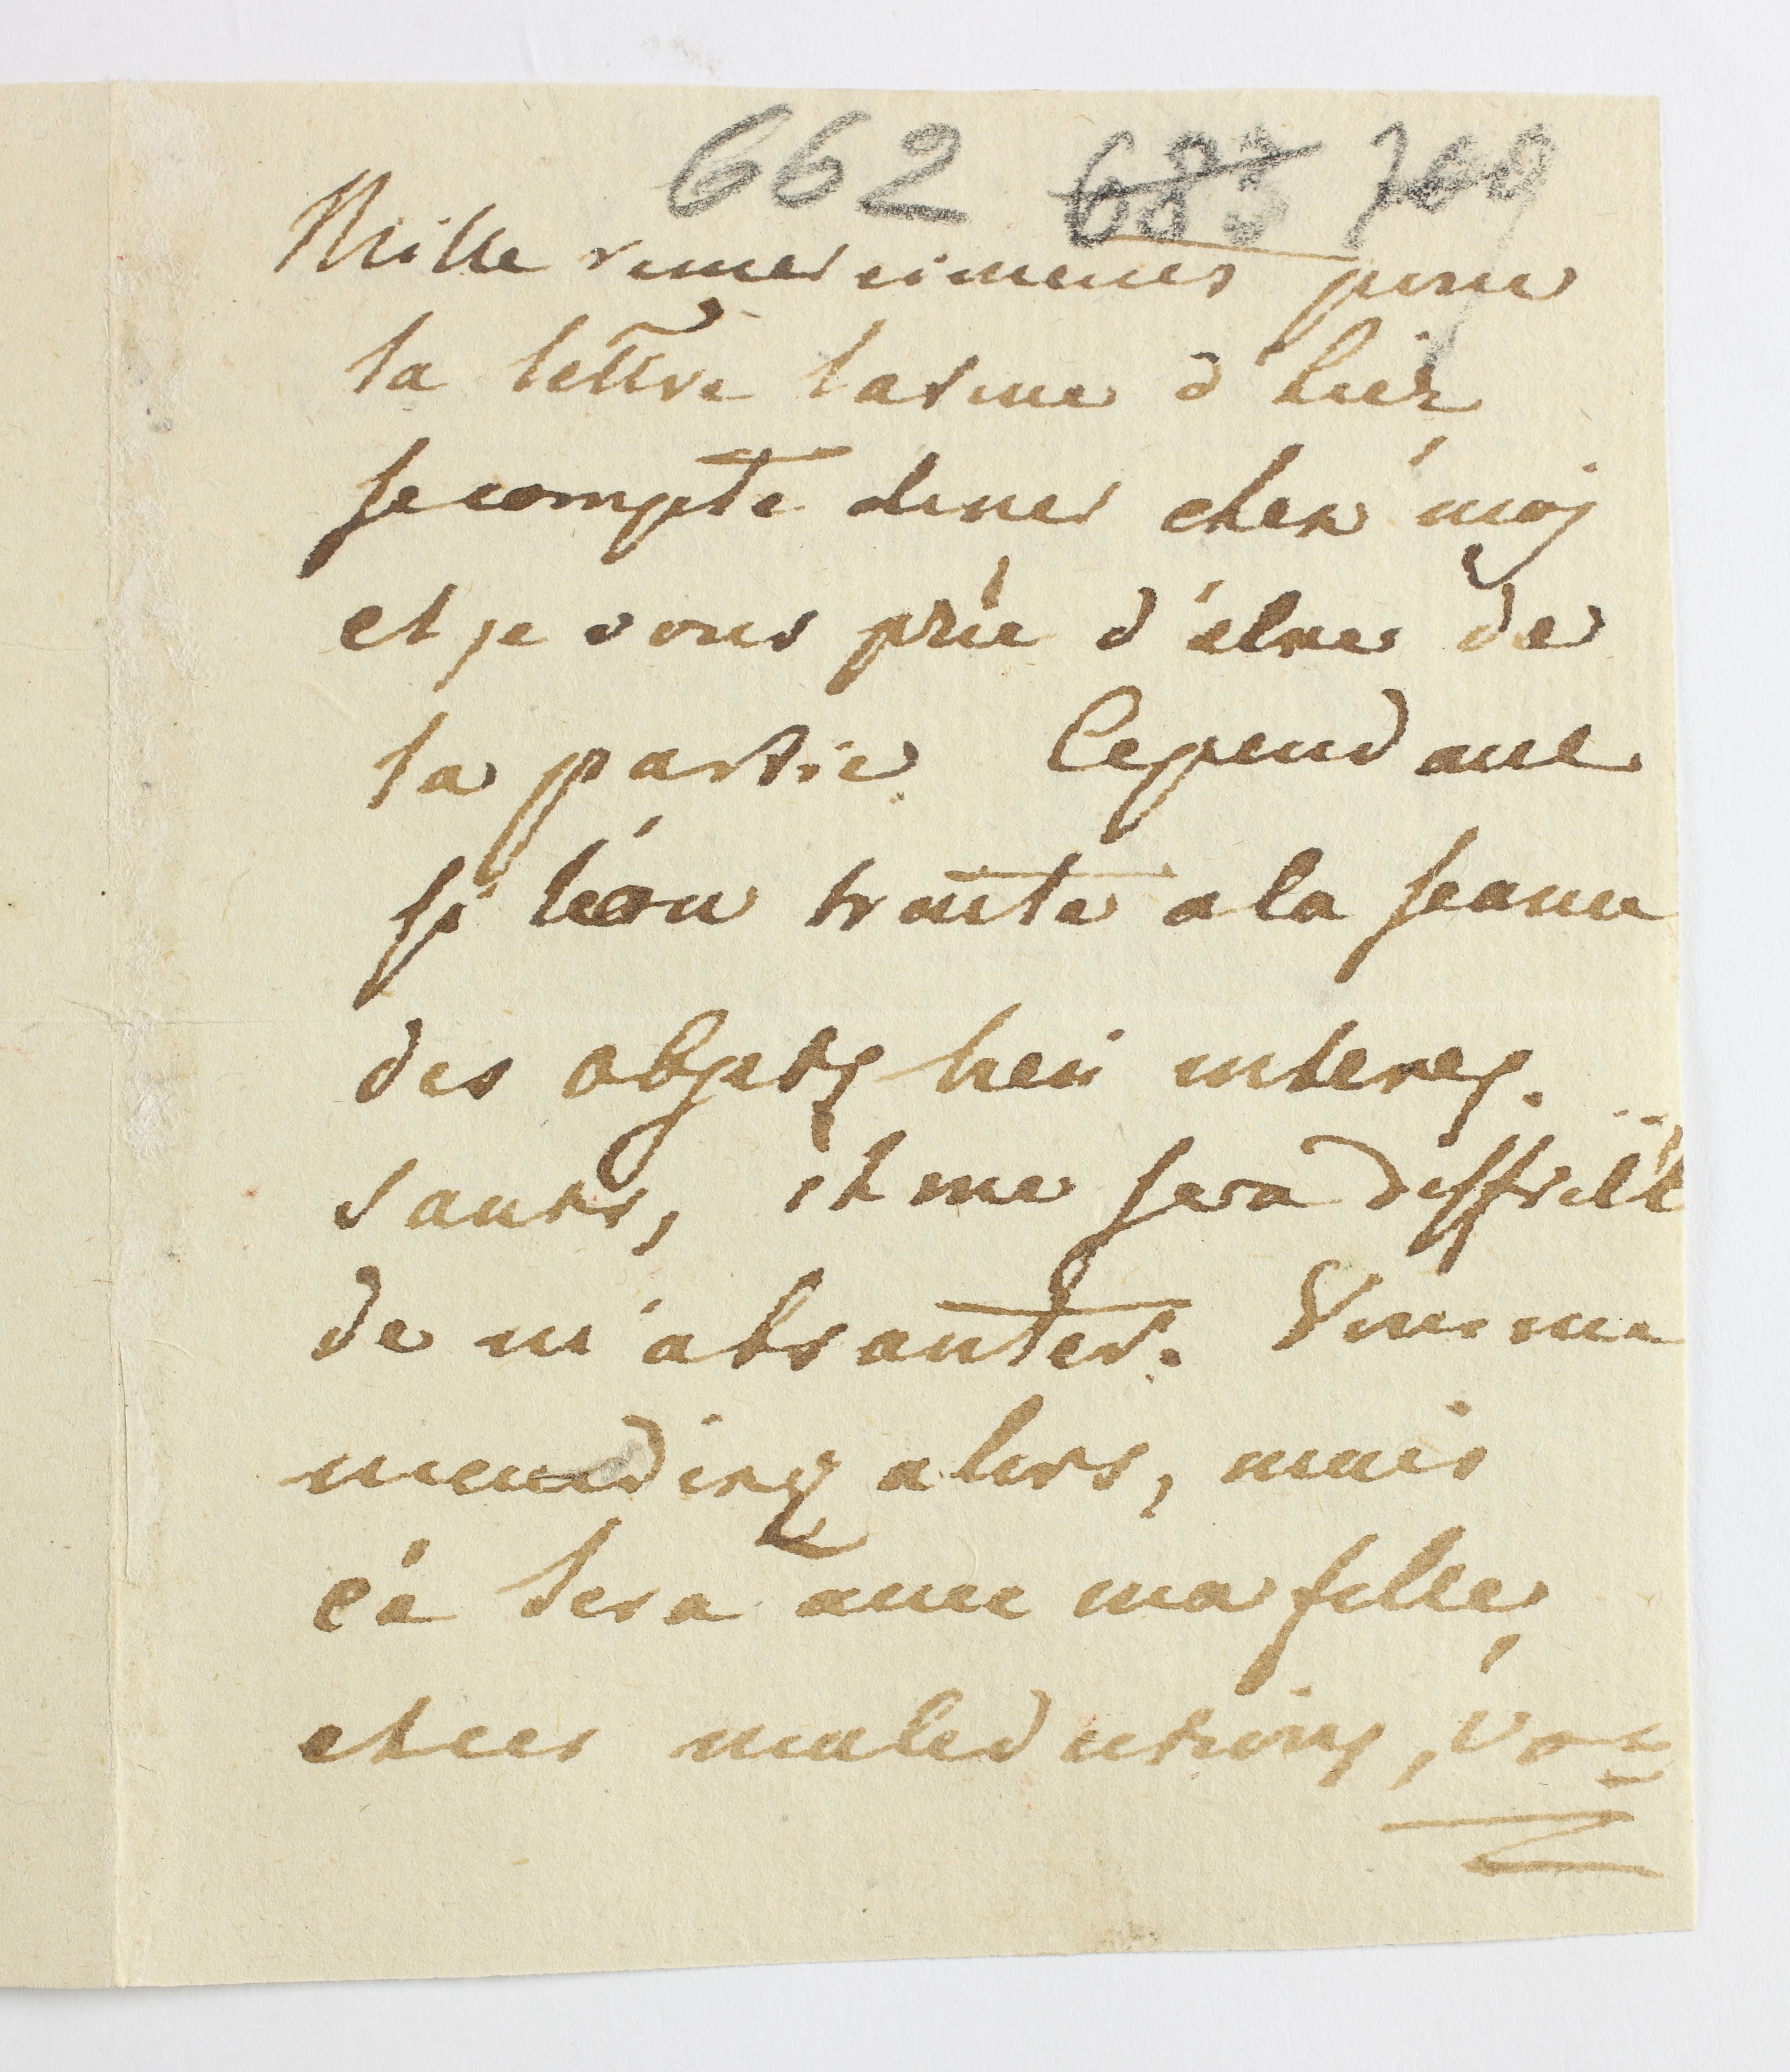 662 683 709
Mille remerciments pour
la lettre latine d'hier
Je compte diner chez moy
et je vous prie d'etre de
la partie. Cependant
si l'on traite a la seance
des objets bien interes-
sants, il me sera difficile
de m'absanter. Vous me
manderez alors, mais
ça sera avec ma fille
et ces maledictions,